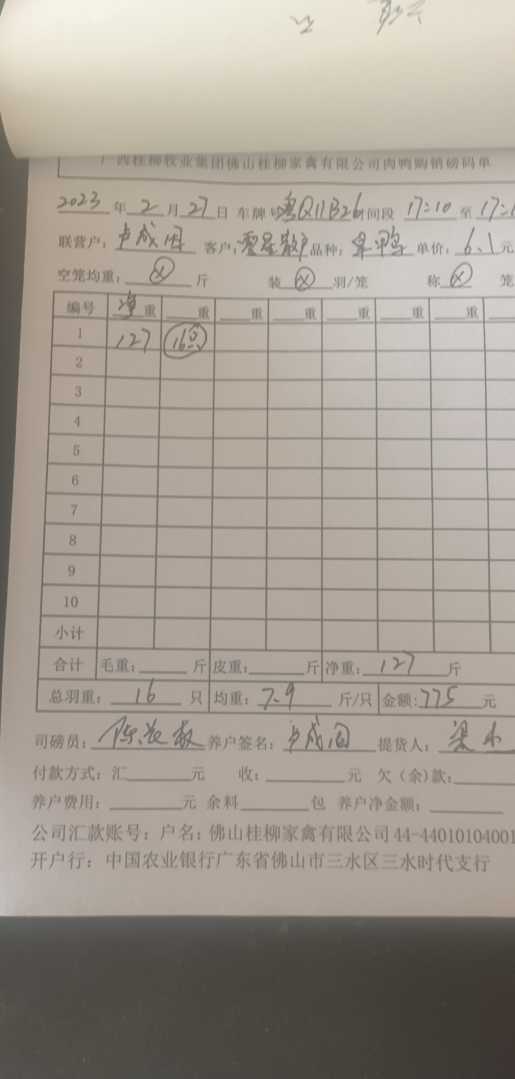 广西桂柳牧业集团佛山桂柳家禽有限公司肉鸭购销磅码单
2023 年 2 月 27 日 车牌 Q11B26 时间段 17:10 至 17:
联营户: 卢成因 客户: 零星散户 品种: 单价: 6.1 元
空笼均重: ⊗ 斤 装 ⊗ 羽/笼 称 ⊗ 笼
编号 净重 重 重 重 重 重 重
1 127 16只
2
3
4
5
6
7
8
9
10
小计
合计 毛重: 斤 皮重: 斤 净重: 127 斤
总羽重: 16 只 均重: 7.9 斤/只 金额: 775 元
司磅员: 养户签名: 卢成因 提货人: 梁
付款方式: 汇 元 收: 元 欠(余)款:
养户费用: 元 余料 包 养户净金额:
公司汇款账号: 户名: 佛山桂柳家禽有限公司 44-44010104001
开户行: 中国农业银行广东省佛山市三水区三水时代支行